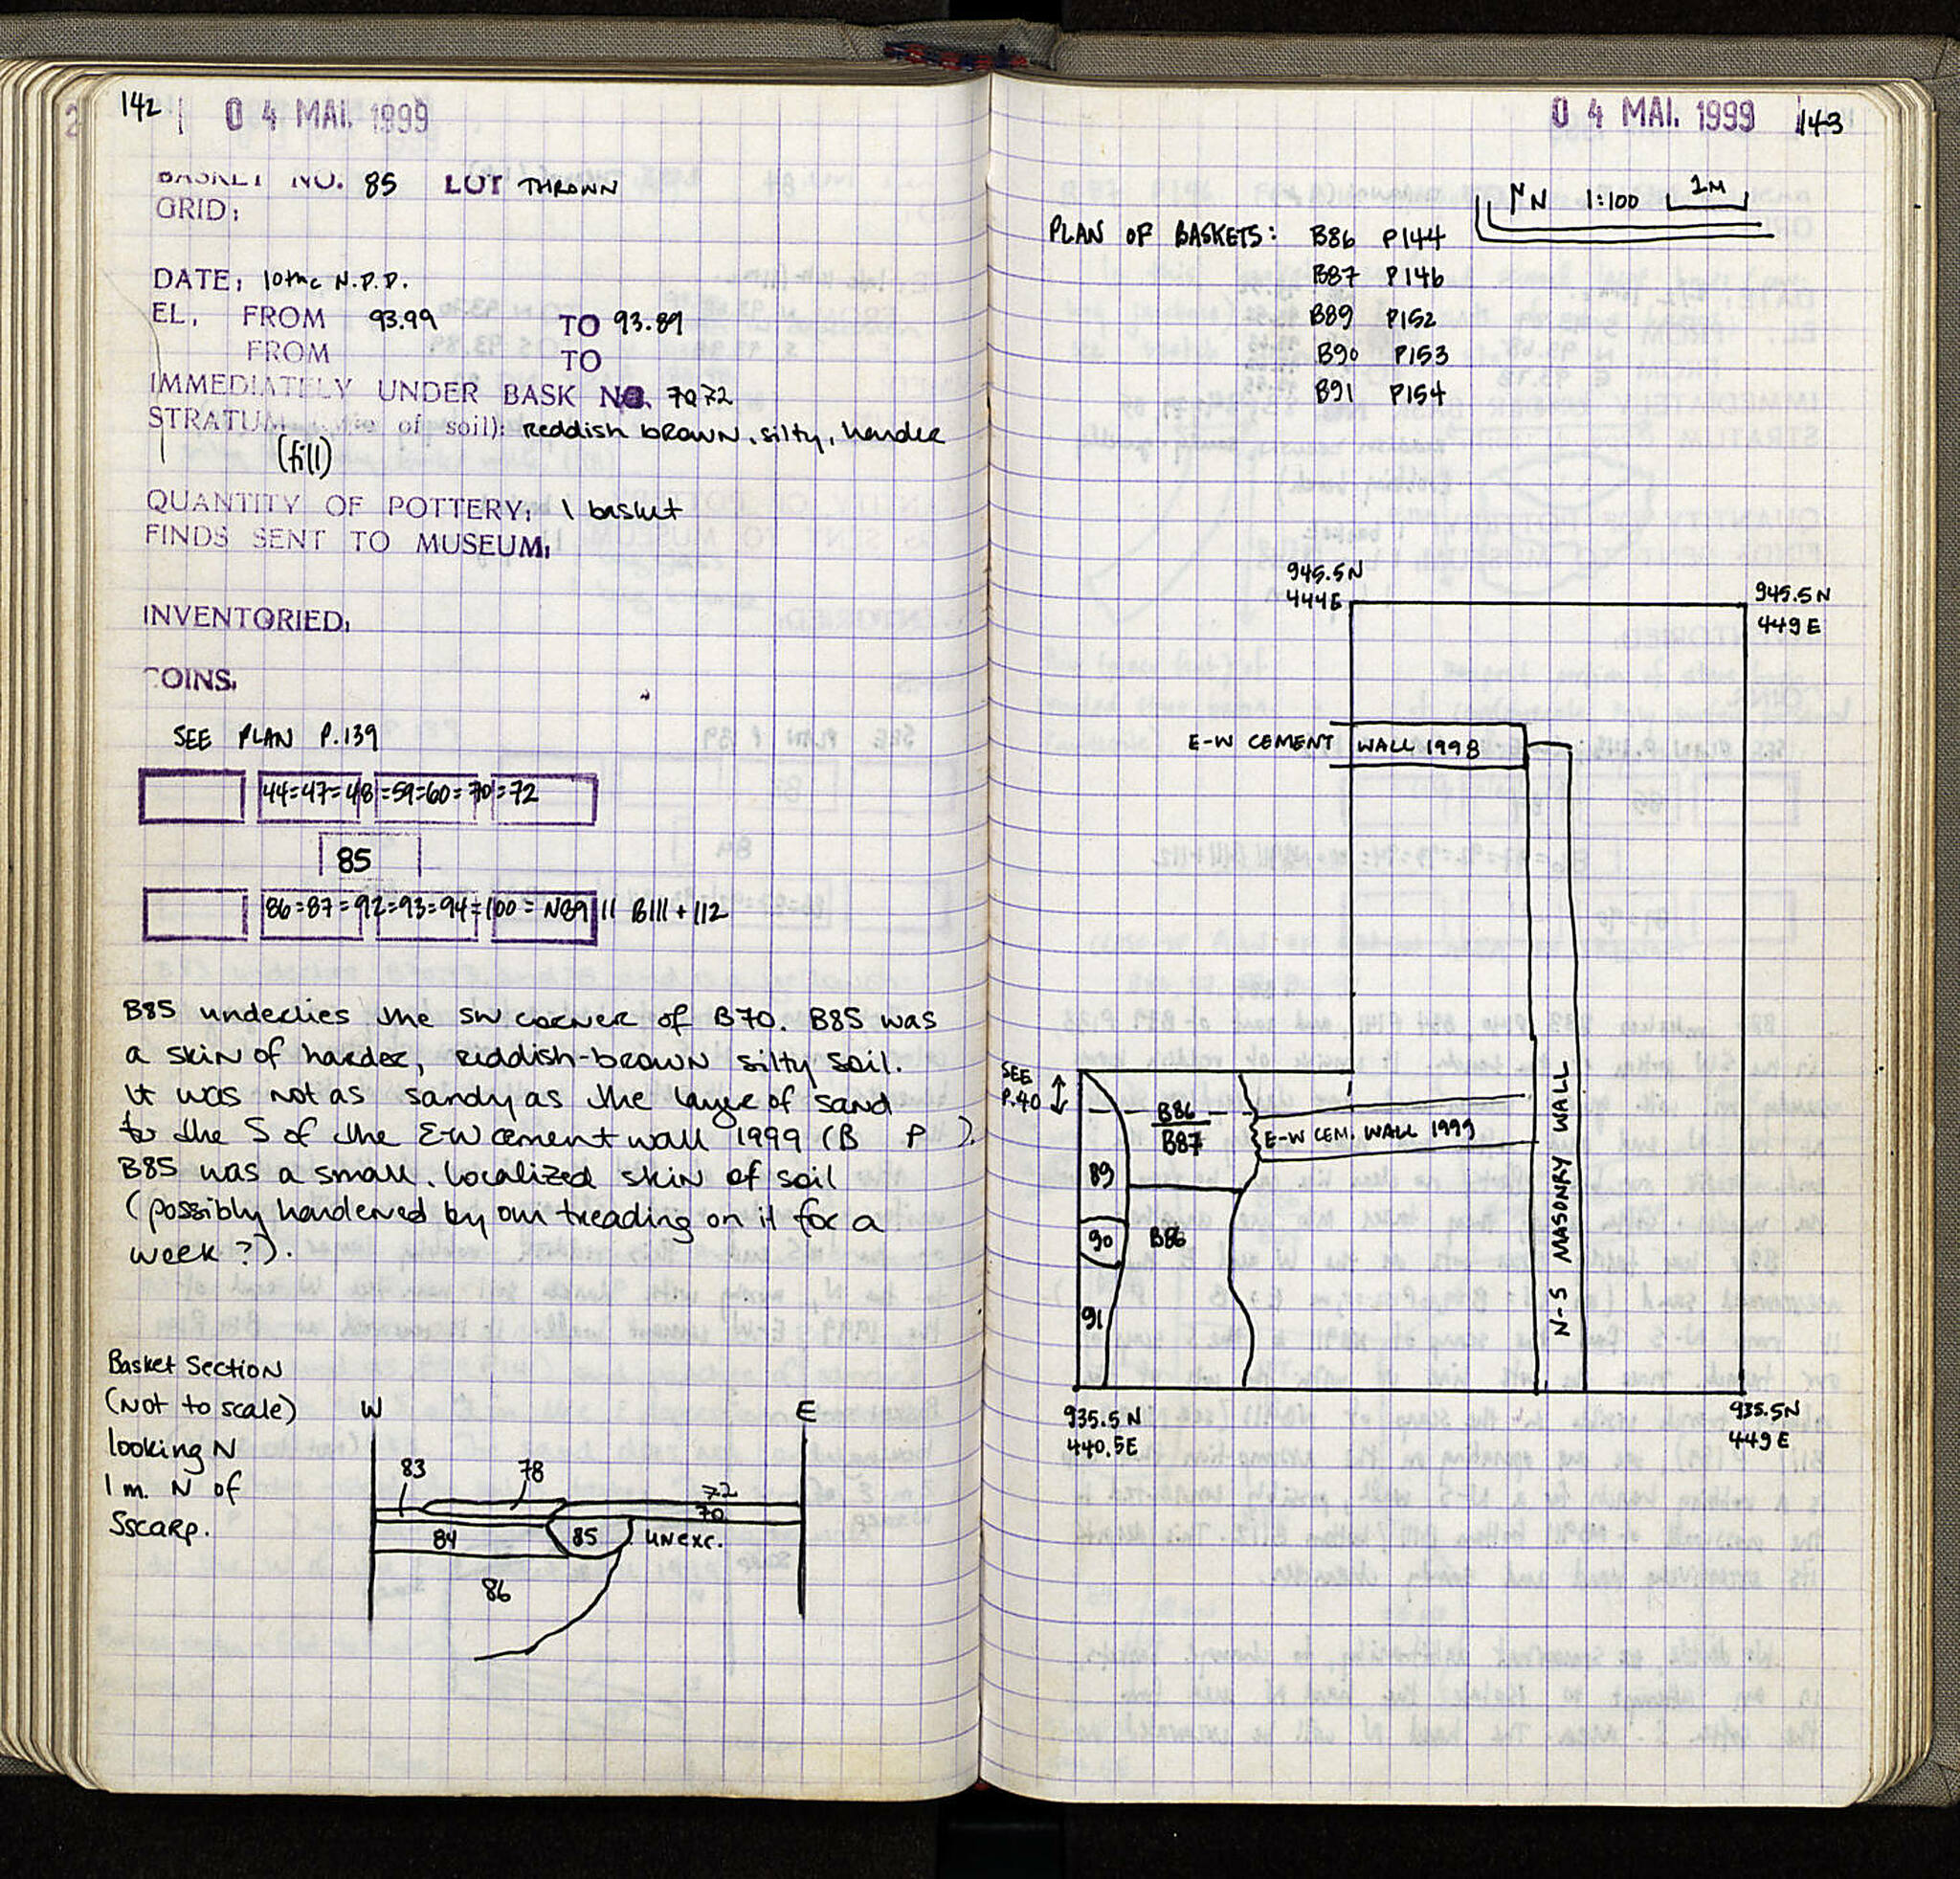 142 | 0 4 MAI. 1999
BASKET NO. 85 LOT THROWN
GRID:
DATE: 10th c N.P.D.
EL. FROM 93.99 TO 93.89
FROM TO
IMMEDIATELY UNDER BASK NO. 70 72
STRATUM of soil): reddish brown, silty, harder
(fill)
QUANTITY OF POTTERY: 1 basket
FINDS SENT TO MUSEUM:
INVENTORIED:
COINS.
SEE PLAN P.139
44=47=48=59=60=70=72
85
86=87=92=93=94=100=NB9 111 B111+112
B85 underlies the SW corner of B70. B85 was
a skin of harder, reddish-brown silty soil.
It was not as sandy as the layer of sand
to the S of the E-W cement wall 1999 (B P ).
B85 was a small, localized skin of soil
(possibly hardened by our treading on it for a
week?).
Basket Section
(Not to scale)
looking N
1 m. N of
S scarp.
W E
83 78
72
70
84 85 unexc.
86
0 4 MAI. 1999 143
N 1:100 1M
PLAN OF BASKETS: B86 P144
B87 P146
B89 P152
B90 P153
B91 P154
945.5N
444E
945.5N
449E
E-W CEMENT WALL 1998
SEE
P.40
B86
B87
E-W CEM. WALL 1999
89
90
B86
91
N-S MASONRY WALL
935.5N
440.5E
935.5N
449E